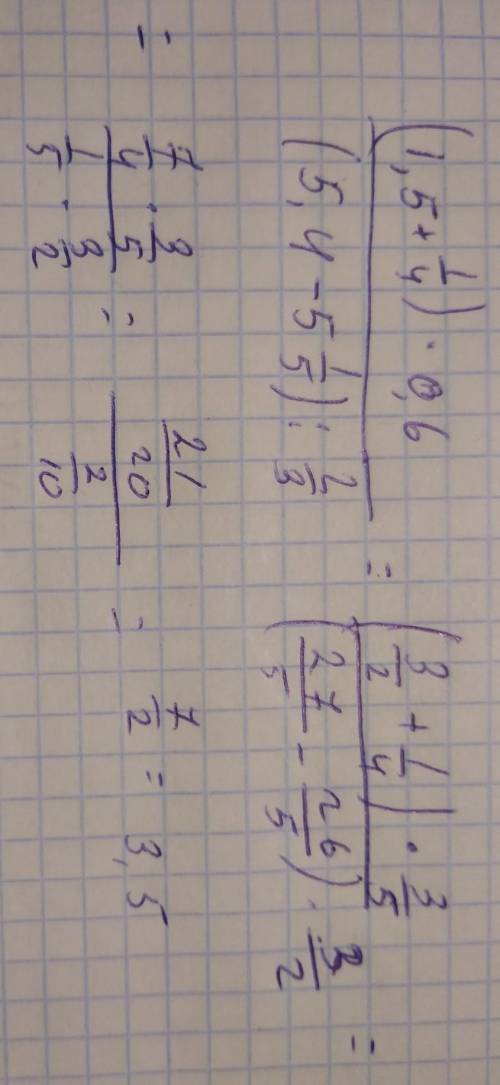 (1,5 + 1/4) · 0,6 / (5,4 − 5 1/5) : 2/3 = (3/2 + 1/4) · 3/5 / (27/5 − 26/5) · 3/2 =
= 7/4 · 3/5 / 1/5 · 3/2 = 21/20 / 3/10 = 7/2 = 3,5